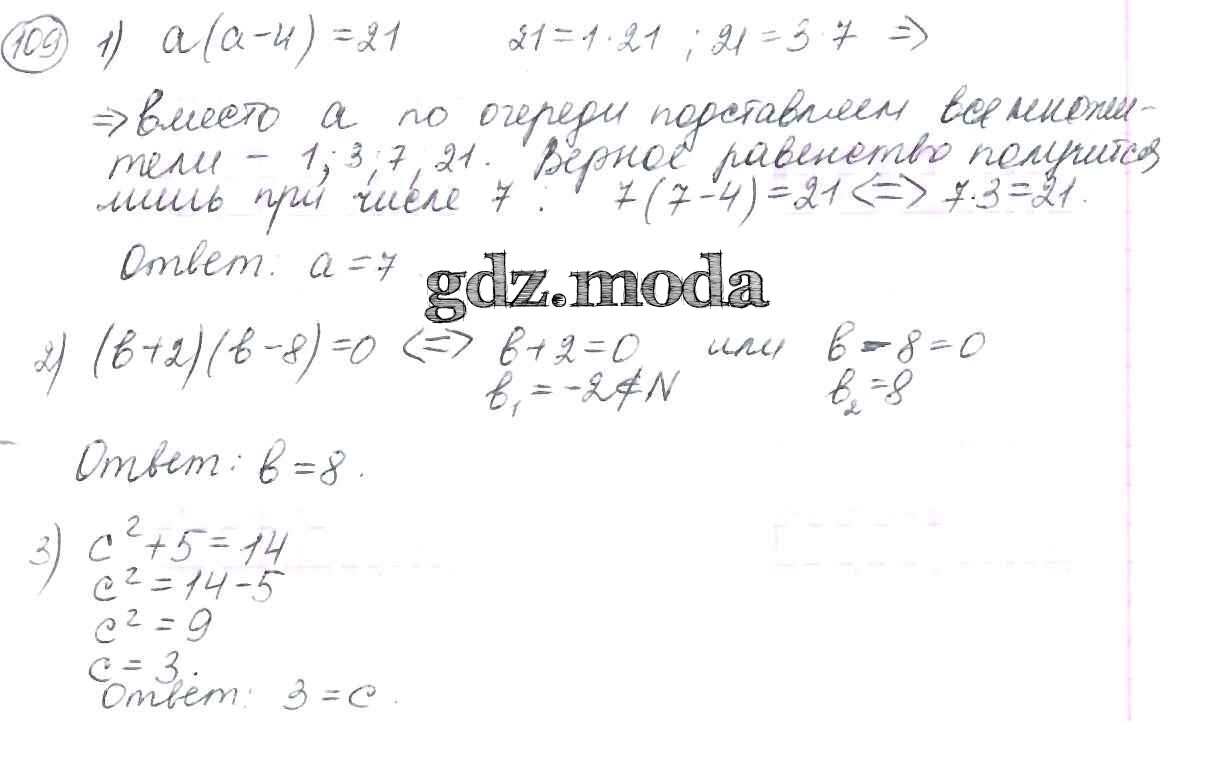 109 1) a(a-4)=21 21=1·21 ; 21=3·7 =>
=> вместо a по очереди подставляем все множи-
тели - 1; 3; 7; 21. Верное равенство получится
лишь при числе 7 : 7(7-4)=21 <=> 7·3=21.
Ответ: a=7
gdz.moda
2) (в+2)(в-8)=0 <=> в+2=0 или в-8=0
в₁=-2∉N в₂=8
Ответ: в=8.
3) c²+5=14
c²=14-5
c²=9
c=3.
Ответ: 3=c.